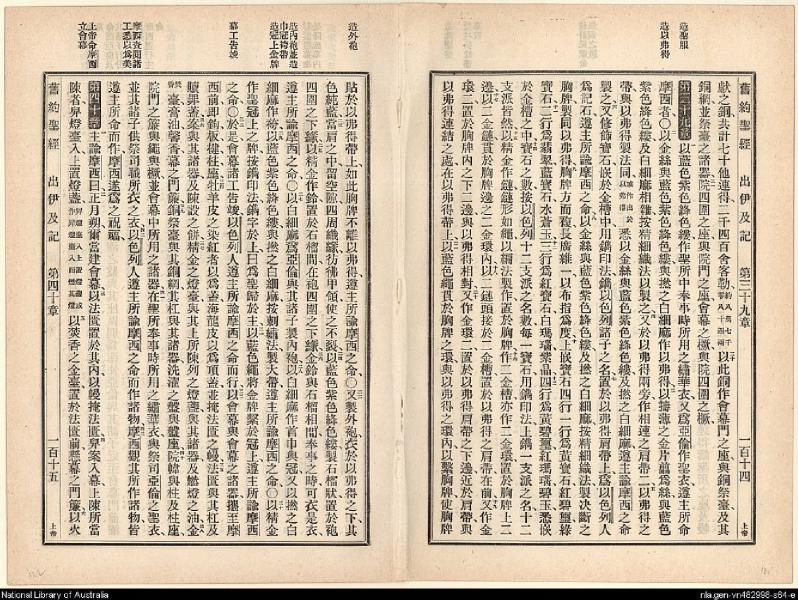 造聖服
造以弗得
舊約聖經 出伊及記 第三十九章 一百十四 上帝
獻之銅共計七十他連得二千四百舍客勒以此銅作會幕門之座與銅祭臺及其
銅網並祭臺之諸器院四圍之座與院門之座會幕之橛與院四圍之橛
第三十九章以藍色紫色絳色縷作聖所中奉事時所用之繡華衣又爲亞倫作聖衣遵主所命
摩西者○以金絲與藍色紫色絳色縷與撚之白細麻作以弗得以擣薄之金片翦爲絲與藍色
紫色絳色縷及白細麻相雜按精細織法以製之又於以弗得兩旁作相連之肩帶二以弗得之
帶與以弗得製法同
悉以金絲與藍色紫色絳色縷及撚之白細麻遵主所諭摩西之命
製之又修飾寶石嵌於金槽中用鐫印法鐫以色列諸子之名置於以弗得肩帶上爲以色列人
爲記石遵主所諭摩西之命○以金絲與藍色紫色絳色縷及撚之白細麻按精細織法製決斷之
胸牌製與以弗得同胸牌方而複長廣維一以布指爲度上嵌寶石四行一行爲黃寶石紅碧璽綠
寶石二行爲翡翠藍寶石水蒼玉三行爲紅寶石白瑪瑙紫晶四行爲黃碧璽紅瑪瑙碧玉悉嵌
於金槽之中寶石之數按以色列十二支派之名數每一寶石用鐫印法上鐫一支派之名十二
支派皆然以精金作鏈鏈形如繩以綱法製作置於胸牌上作二金槽亦作二金環置於胸牌上二
邊以二金鏈貫於胸牌邊之二金環內以二鏈頭接於二金槽置於以弗得之肩帶在前又作金
環二置於胸牌內之下二邊與以弗得相對又作金環二置於以弗得肩帶之下邊近於肩帶與
以弗得連結之處在以弗得帶上以藍色繩貫於胸牌之環與以弗得之環內以繫胸牌使胸牌
造外袍
造內袍並造
巾冠褲帶
造冠上金牌
幕工告竣
摩西查閱諸
工悉以爲美
上帝命摩西
立會幕
貼於以弗得帶上如此胸牌不離以弗得遵主所諭摩西之命○又製外袍衣於以弗得之下其
色純藍當肩之中留空隙四周織繸彷彿甲領使之不裂以藍色紫色絳色縷製石榴狀置於袍
四圍之下繸以精金作鈴置於石榴間在袍四圍之下繸金鈴與石榴相間奉事之時可衣是衣
遵主所諭摩西之命○以白細麻爲亞倫與其諸子製內袍以白細麻作首巾與冠又以撚之白
細麻作袴以藍色紫色絳色縷與撚之白細麻按刺繡法製大帶遵主所諭摩西之命○以精金
作聖冠上之牌按鐫印法鐫字於上曰爲聖歸於主以藍色繩將金牌繫於冠上遵主所諭摩西
之命○於是會幕諸工告竣以色列人遵主所諭摩西之命而行以會幕與會幕之諸器攜至摩
西前即鉤板楗柱座牡羊皮之染紅者以爲蓋海龍皮以爲頂蓋並掩法匱之幔法匱與其杠及
贖罪蓋案與其諸器及陳設之餅精金之燈臺與其上所陳列之燈盞與其諸器及燃燈之油金
臺膏油馨香幕之門簾銅祭臺與其銅網其杠與其諸器洗濯之盤與盤座院幃與柱及柱座
院門之簾與繩與橛並會幕中所用之諸器在聖所奉事時所用之繡華衣與祭司亞倫之聖衣
並其諸子供祭司職所衣之衣以色列人遵主所諭摩西之命而作諸物摩西觀其所作諸物皆
遵主所命而作摩西遂爲之祝福
第四十章主諭摩西曰正月朔爾當建會幕以法匱置於其內以幔掩法匱舁案入幕上陳所當
陳者舁燈臺入上置燈盞
以焚香之金臺置於法匱前懸幕之門簾以火
舊約聖經 出伊及記 第四十章 一百十五 上帝
National Library of Australia
nla.gen-vn482998-s64-e